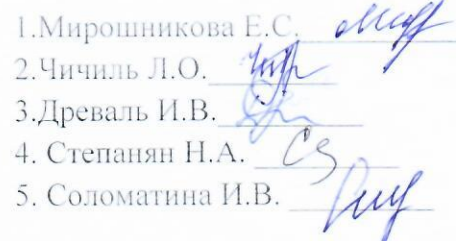 1.Мирошникова Е.С.
2.Чичиль Л.О.
3.Древаль И.В.
4. Степанян Н.А.
5. Соломатина И.В.